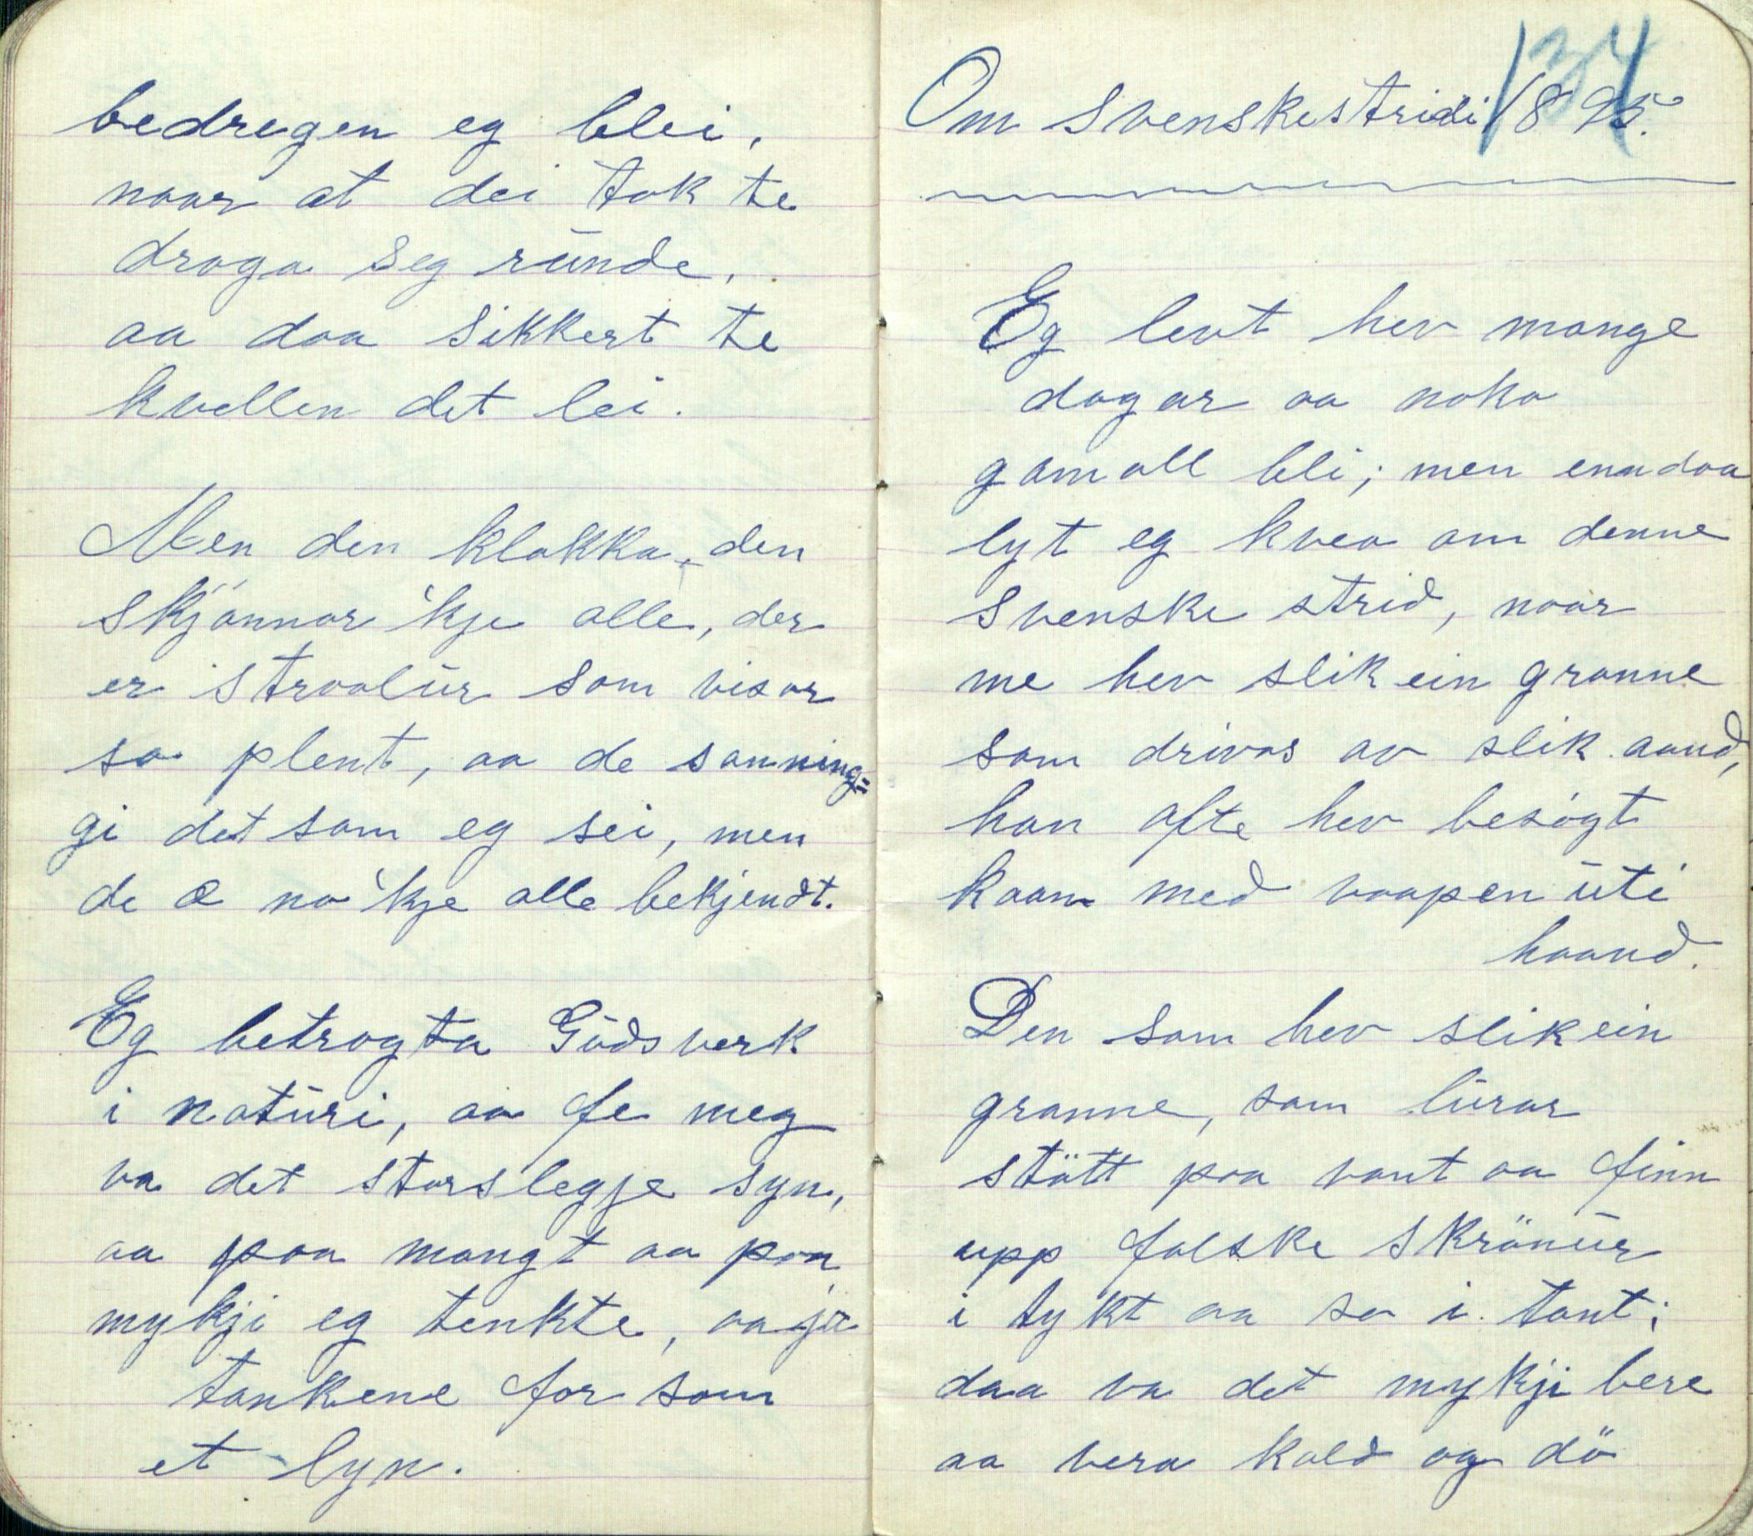 bedregen eg blei,
naar at dei tok te
draga seg runde,
aa daa sikkert te
kvellen det lei.
Men den klokka, den
skjönnar 'kje alle, der
er straalur som visar
so plent, aa de sanning=
gi det som eg sei, men
de æ no 'kje alle bekjendt.
Eg betragta Guds verk
i naturi, aa fe meg
va det storslegje syn,
aa paa mangt aa paa
mykji eg tenkte, aa
tankene for som
et lyn.
134
Om svenskestridi 1895.
Eg levt hev mange
dagar aa noko
gamall bli; men enndaa
lyt eg kvea om denne
svenske strid, naar
me hev slik ein granne
som drivas av slik aand,
han ofte hev besögt
kaam med vaapen uti
haand.
Den som hev slik ein
granne, som lurar
stött paa vant aa finn
upp falske skrönur
i tykt aa so i tant;
daa va det mykji bere
aa vera kald og dö